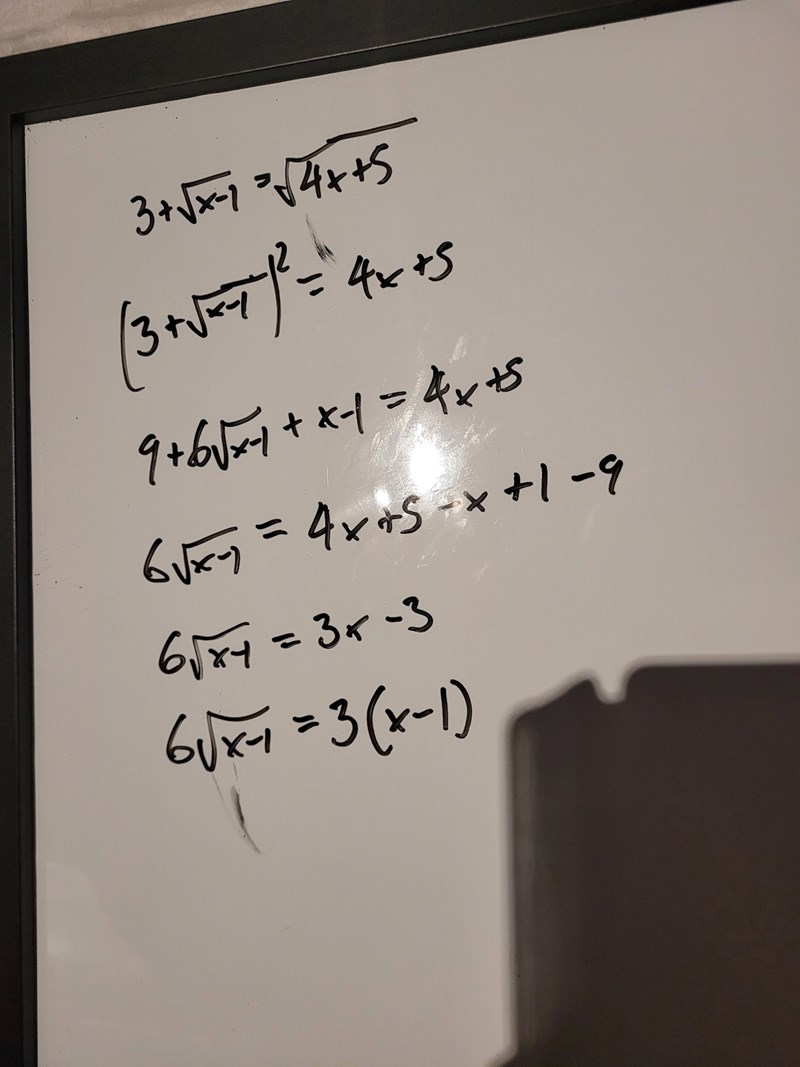 3+√(x-1) = √(4x+5)
(3+√(x-1))² = 4x+5
9+6√(x-1) + x-1 = 4x+5
6√(x-1) = 4x+5-x+1-9
6√(x-1) = 3x-3
6√(x-1) = 3(x-1)